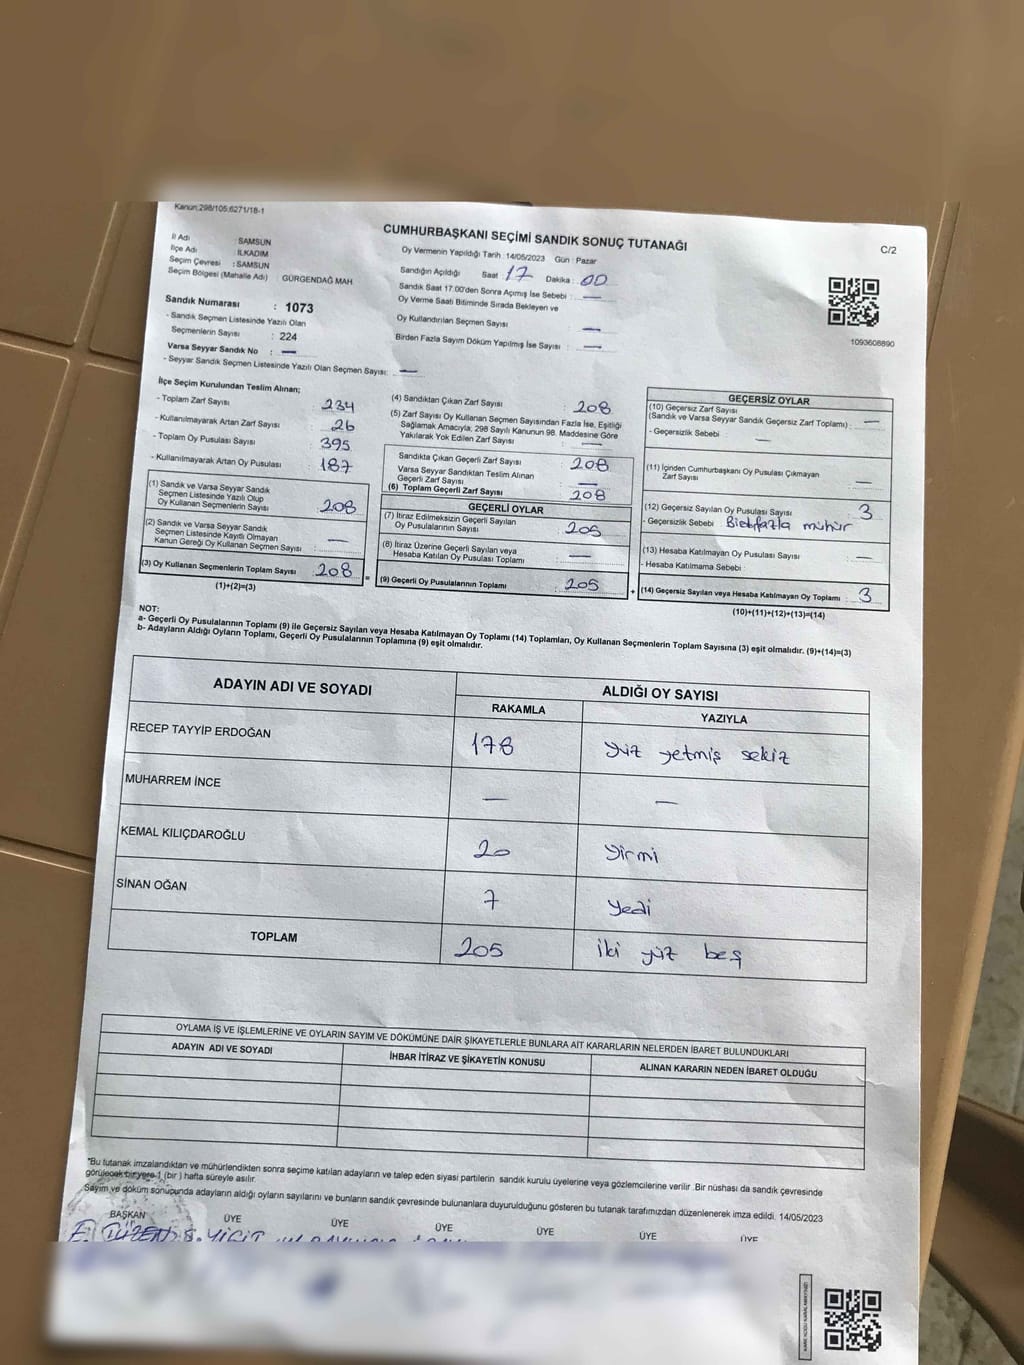 Kanun:298/105;6271/18-1
CUMHURBAŞKANI SEÇİMİ SANDIK SONUÇ TUTANAĞI
C/2
İl Adı : SAMSUN
İlçe Adı : İLKADIM
Seçim Çevresi : SAMSUN
Seçim Bölgesi (Mahalle Adı) : GÜRGENDAĞ MAH
Oy Vermenin Yapıldığı Tarih : 14/05/2023 Gün : Pazar
Sandığın Açıldığı Saat : 17 Dakika : 00
Sandık Saat 17.00'den Sonra Açımış İse Sebebi : —
Oy Verme Saati Bitiminde Sırada Bekleyen ve
Oy Kullandırılan Seçmen Sayısı —
Birden Fazla Sayım Döküm Yapılmış İse Sayısı : —
1093608890
Sandık Numarası : 1073
- Sandık Seçmen Listesinde Yazılı Olan
Seçmenlerin Sayısı : 224
Varsa Seyyar Sandık No : —
- Seyyar Sandık Seçmen Listesinde Yazılı Olan Seçmen Sayısı: —
İlçe Seçim Kurulundan Teslim Alınan;
- Toplam Zarf Sayısı : 234
- Kullanılmayarak Artan Zarf Sayısı : 26
- Toplam Oy Pusulası Sayısı : 395
- Kullanılmayarak Artan Oy Pusulası : 187
(1) Sandık ve Varsa Seyyar Sandık
Seçmen Listesinde Yazılı Olup
Oy Kullanan Seçmenlerin Sayısı : 208
(2) Sandık ve Varsa Seyyar Sandık
Seçmen Listesinde Kayıtlı Olmayan
Kanun Gereği Oy Kullanan Seçmen Sayısı : —
(3) Oy Kullanan Seçmenlerin Toplam Sayısı : 208
(1)+(2)=(3)
(4) Sandıktan Çıkan Zarf Sayısı : 208
(5) Zarf Sayısı Oy Kullanan Seçmen Sayısından Fazla İse, Eşitliği
Sağlamak Amacıyla; 298 Sayılı Kanunun 98. Maddesine Göre
Yakılarak Yok Edilen Zarf Sayısı : —
Sandıkta Çıkan Geçerli Zarf Sayısı : 208
Varsa Seyyar Sandıktan Teslim Alınan
Geçerli Zarf Sayısı : —
(6) Toplam Geçerli Zarf Sayısı : 208
GEÇERLİ OYLAR
(7) İtiraz Edilmeksizin Geçerli Sayılan
Oy Pusulalarının Sayısı : 205
(8) İtiraz Üzerine Geçerli Sayılan veya
Hesaba Katılan Oy Pusulası Toplamı : —
= (9) Geçerli Oy Pusulalarının Toplamı : 205
GEÇERSİZ OYLAR
(10) Geçersiz Zarf Sayısı
(Sandık ve Varsa Seyyar Sandık Geçersiz Zarf Toplamı) : —
- Geçersizlik Sebebi : —
(11) İçinden Cumhurbaşkanı Oy Pusulası Çıkmayan
Zarf Sayısı : —
(12) Geçersiz Sayılan Oy Pusulası Sayısı : 3
- Geçersizlik Sebebi : mühür
(13) Hesaba Katılmayan Oy Pusulası Sayısı : —
- Hesaba Katılmama Sebebi :
+ (14) Geçersiz Sayılan veya Hesaba Katılmayan Oy Toplamı : 3
(10)+(11)+(12)+(13)=(14)
NOT:
a- Geçerli Oy Pusulalarının Toplamı (9) ile Geçersiz Sayılan veya Hesaba Katılmayan Oy Toplamı (14) Toplamları, Oy Kullanan Seçmenlerin Toplam Sayısına (3) eşit olmalıdır. (9)+(14)=(3)
b- Adayların Aldığı Oyların Toplamı, Geçerli Oy Pusulalarının Toplamına (9) eşit olmalıdır.
ADAYIN ADI VE SOYADI ALDIĞI OY SAYISI
RAKAMLA YAZIYLA
RECEP TAYYİP ERDOĞAN 178 yüz yetmiş sekiz
MUHARREM İNCE — —
KEMAL KILIÇDAROĞLU 20 yirmi
SİNAN OĞAN 7 yedi
TOPLAM 205 iki yüz beş
OYLAMA İŞ VE İŞLEMLERİNE VE OYLARIN SAYIM VE DÖKÜMÜNE DAİR ŞİKAYETLERLE BUNLARA AİT KARARLARIN NELERDEN İBARET BULUNDUKLARI
ADAYIN ADI VE SOYADI İHBAR İTİRAZ VE ŞİKAYETİN KONUSU ALINAN KARARIN NEDEN İBARET OLDUĞU
"Bu tutanak imzalandıktan ve mühürlendikten sonra seçime katılan adayların ve talep eden siyasi partilerin sandık kurulu üyelerine veya gözlemcilerine verilir .Bir nüshası da sandık çevresinde
görülecek bir yere 1 (bir ) hafta süreyle asılır.
Sayım ve döküm sonucunda adayların aldığı oyların sayılarını ve bunların sandık çevresinde bulunanlara duyurulduğunu gösteren bu tutanak tarafımızdan düzenlenerek imza edildi. 14/05/2023
BAŞKAN ÜYE ÜYE ÜYE ÜYE ÜYE ÜYE
F. DÜZEN S. YİĞİT